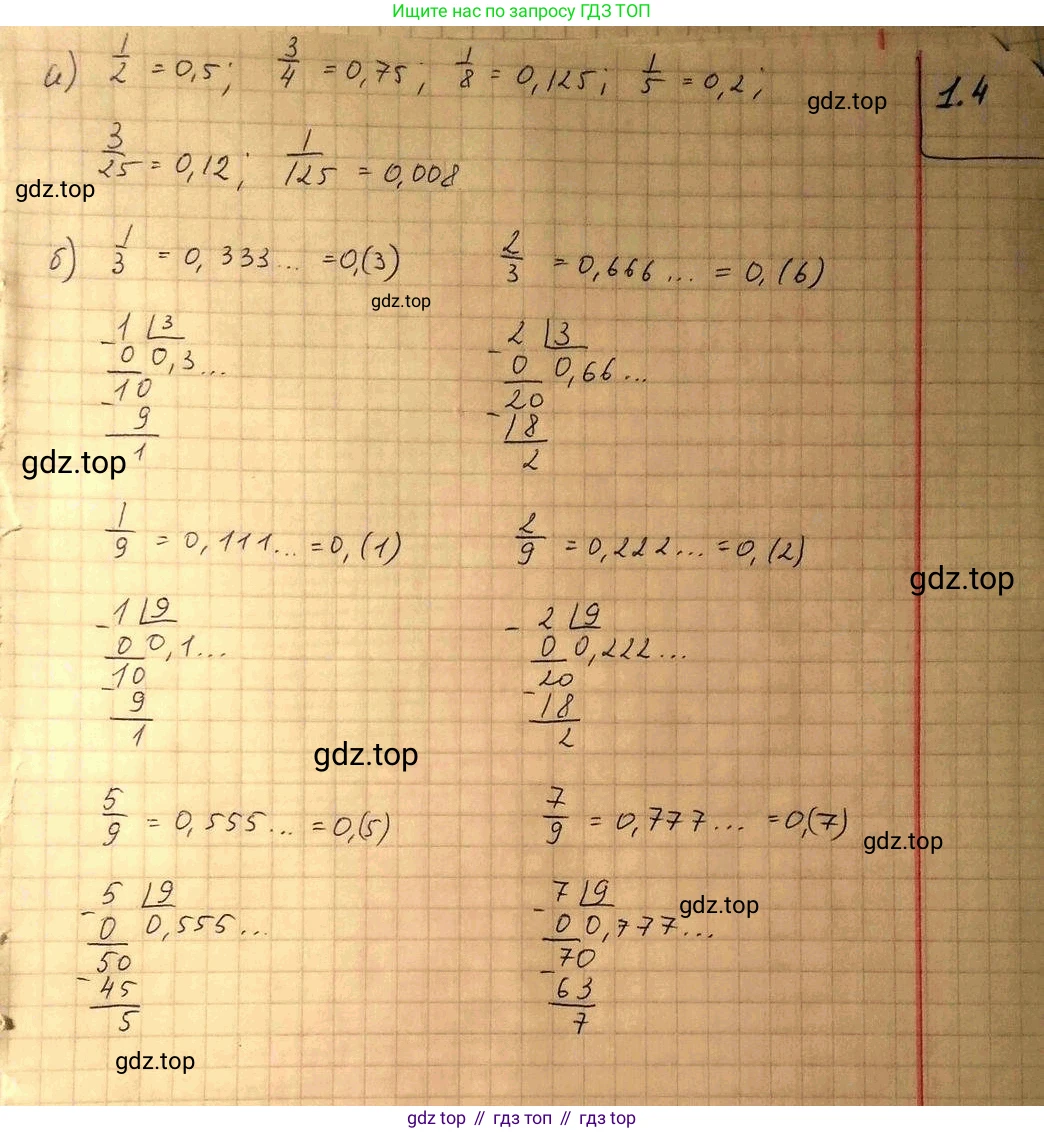 Ищите нас по запросу ГДЗ ТОП
а) 1/2 = 0,5; 3/4 = 0,75; 1/8 = 0,125; 1/5 = 0,2;
gdz.top
1.4
3/25 = 0,12; 1/125 = 0,008
gdz.top
б) 1/3 = 0,333... = 0,(3) 2/3 = 0,666... = 0,(6)
gdz.top
1 3 2 3
- 0 0,3... - 0 0,66...
10 20
- 9 - 18
1 2
gdz.top
1/9 = 0,111... = 0,(1) 2/9 = 0,222... = 0,(2)
gdz.top
1 9 2 9
- 0 0,1... - 0 0,222...
10 20
- 9 - 18
1 2
gdz.top
5/9 = 0,555... = 0,(5) 7/9 = 0,777... = 0,(7)
gdz.top
5 9 7 9
gdz.top
- 0 0,555... - 0 0,777...
50 70
- 45 - 63
5 7
gdz.top
gdz top // гдз топ // gdz top